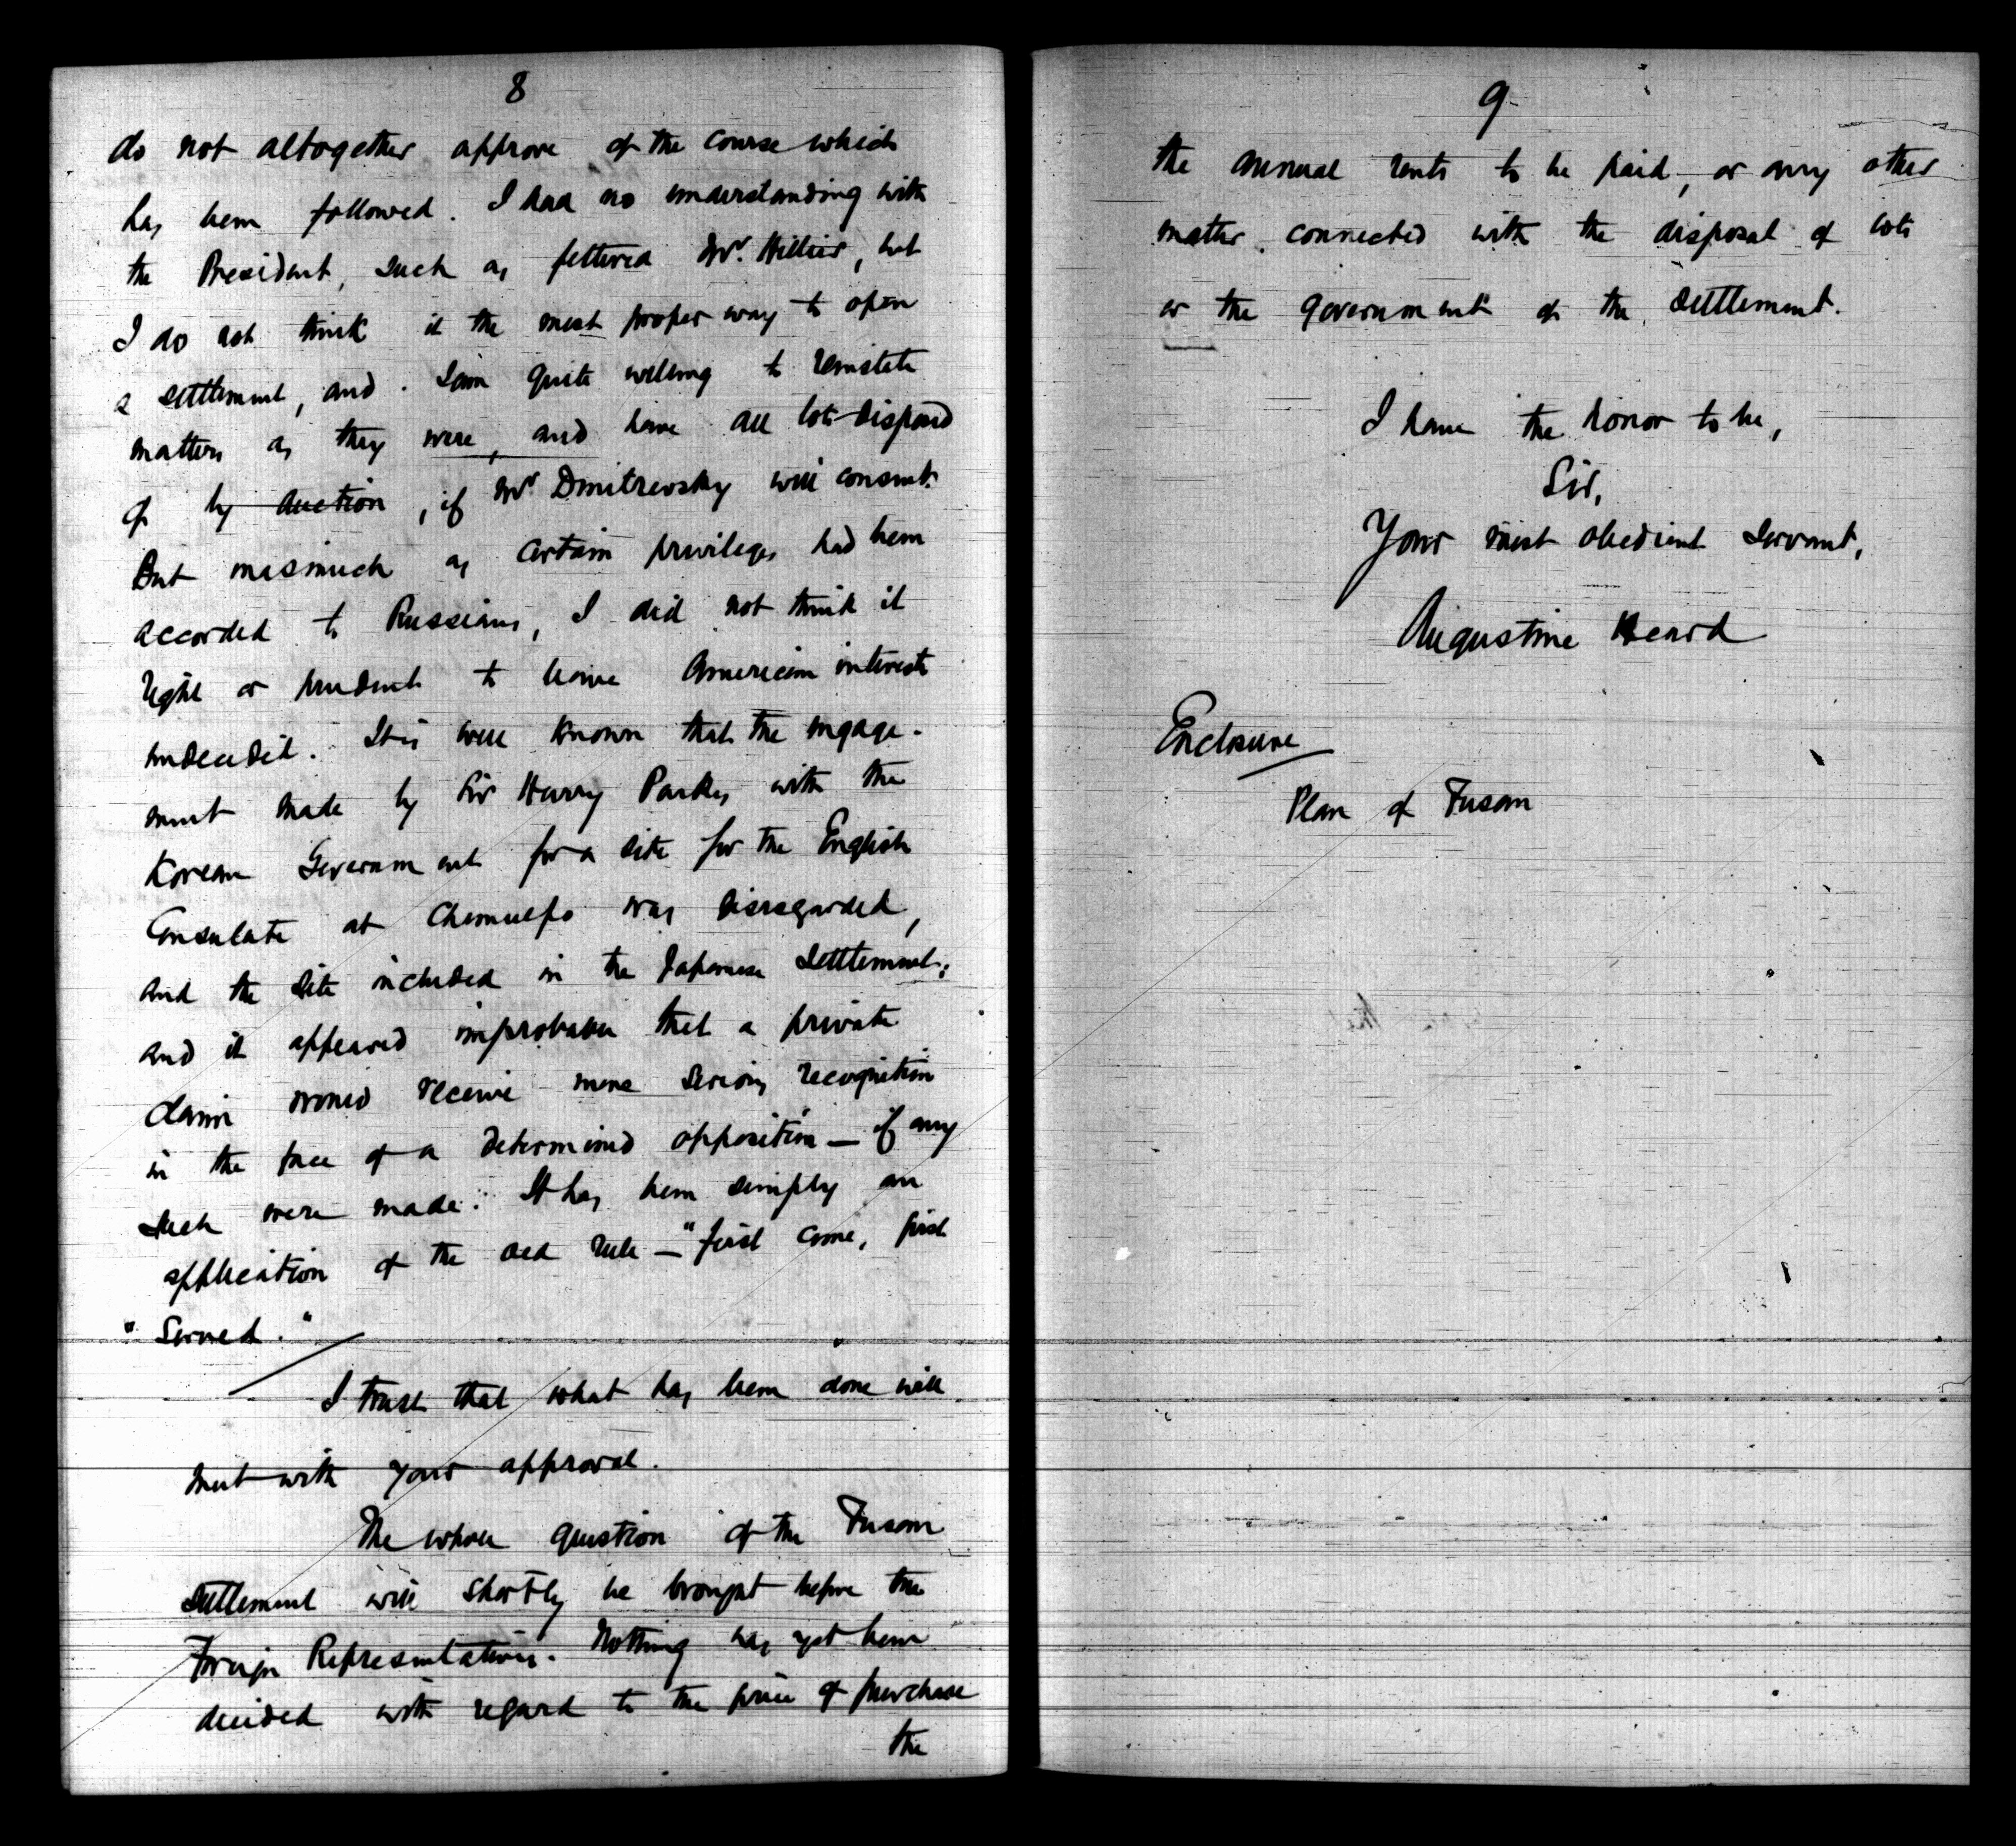 8
do not altogether approve of the course which
has been followed. I had no understanding with
the President, such as fettered Mr. Hillier, but
I do not think it the most proper way to open
a settlement, and I am quite willing to reinstate
matters as they were, and have all lots disposed
of by auction, if Mr Dmitrevsky will consent.
But inasmuch as certain privileges had been
accorded to Russians, I did not think it
right or prudent to leave American interests
undecided. It is well known that the engage-
ment made by Sir Harry Parkes with the
Korean Government for a site for the English
Consulate at Chemulpo was disregarded,
and the site included in the Japanese Settlement;
and it appeared improbable that a private
claim would receive more serious recognition
in the face of a determined opposition — if any
such were made. It has been simply an
application of the old rule — "first come, first
"served."
I trust that what has been done will
meet with your approval.
The whole question of the Fusan
Settlement will shortly be brought before the
Foreign Representatives. Nothing has yet been
decided with regard to the price of purchase
the
9
the annual rents to be paid, or any other
matter connected with the disposal of lots
or the government of the Settlement.
I have the honor to be,
Sir,
Your most obedient servant,
Augustine Heard
Enclosure
Plan of Fusan